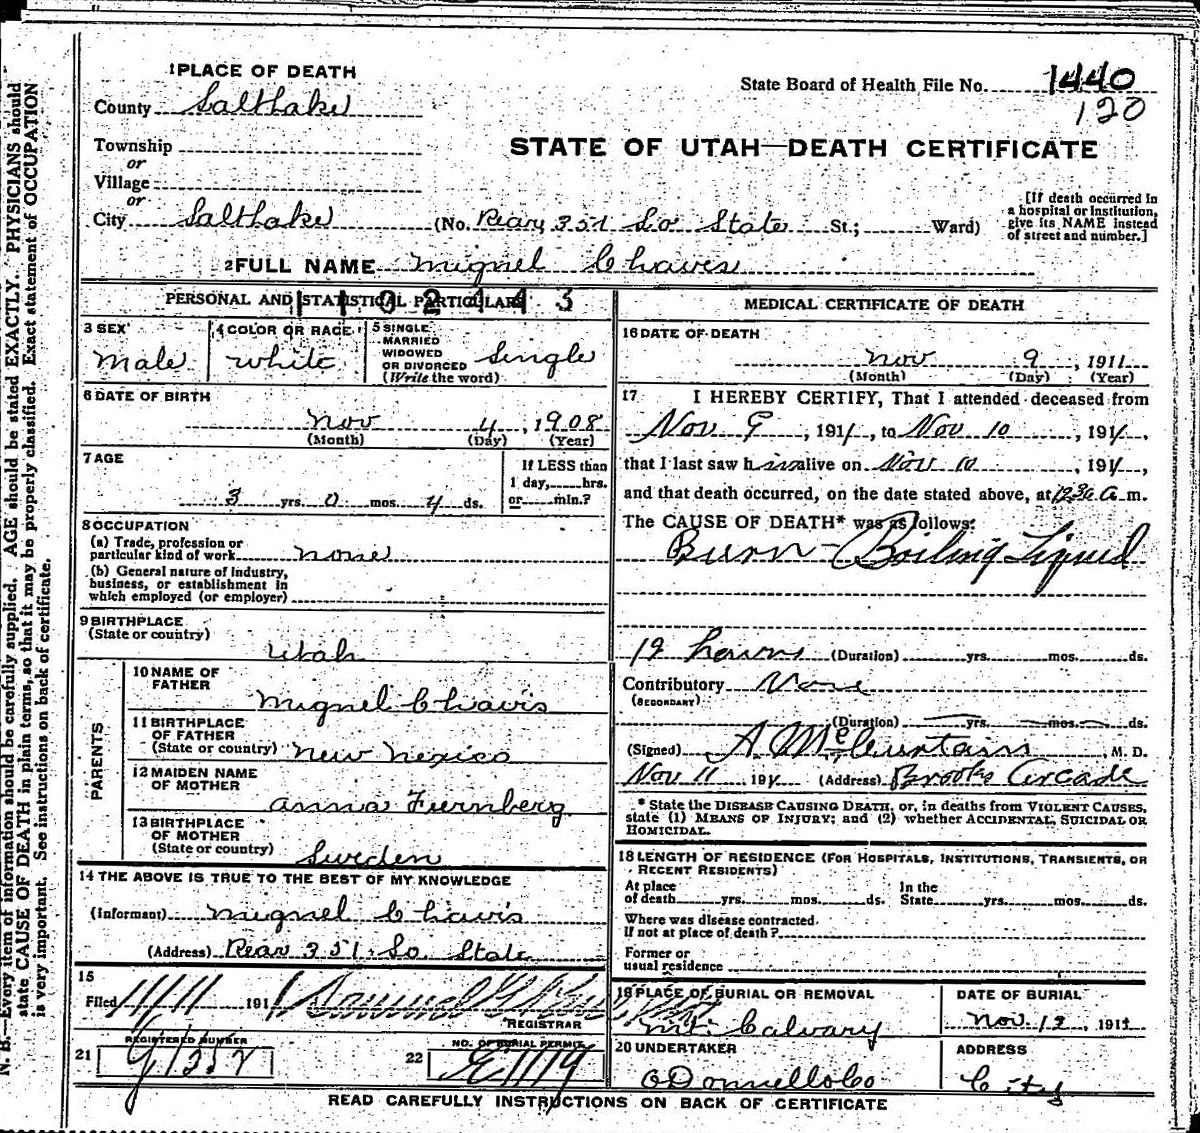 1 PLACE OF DEATH
County Salt Lake
State Board of Health File No. 1440
120
Township
or
Village
or
City Salt Lake (No. Rear 351 So State St.; Ward)
STATE OF UTAH—DEATH CERTIFICATE
[If death occurred in a hospital or institution, give its NAME instead of street and number.]
2 FULL NAME Miguel Chavis
PERSONAL AND STATISTICAL PARTICULARS
3 SEX
Male
4 COLOR OR RACE
White
5 SINGLE
MARRIED
WIDOWED
OR DIVORCED
(Write the word)
Single
6 DATE OF BIRTH
Nov 4, 1908
(Month) (Day) (Year)
7 AGE
3 yrs. 0 mos. 4 ds.
If LESS than
1 day, hrs.
or min.?
8 OCCUPATION
(a) Trade, profession or
particular kind of work none
(b) General nature of industry,
business, or establishment in
which employed (or employer)
9 BIRTHPLACE
(State or country)
Utah
PARENTS
10 NAME OF
FATHER
Miguel Chavis
11 BIRTHPLACE
OF FATHER
(State or country) New Mexico
12 MAIDEN NAME
OF MOTHER
Anna Furnberg
13 BIRTHPLACE
OF MOTHER
(State or country) Sweden
14 THE ABOVE IS TRUE TO THE BEST OF MY KNOWLEDGE
(Informant) Miguel Chavis
(Address) Rear 351 So. State
15
Filed 11/11 191
REGISTRAR
21 REGISTERED NUMBER
22 NO. OF BURIAL PERMIT
MEDICAL CERTIFICATE OF DEATH
16 DATE OF DEATH
Nov 9, 1911
(Month) (Day) (Year)
17 I HEREBY CERTIFY, That I attended deceased from
Nov 9, 1911, to Nov 10, 1911,
that I last saw him alive on Nov 10, 1911,
and that death occurred, on the date stated above, at 12 36 a.m.
The CAUSE OF DEATH* was as follows:
Burn - Boiling Liquid
12 hours (Duration) yrs. mos. ds.
Contributory None
(SECONDARY)
(Duration) yrs. mos. ds.
(Signed) M. D.
Nov 11, 191 (Address) Brooks Arcade
* State the DISEASE CAUSING DEATH, or, in deaths from VIOLENT CAUSES,
state (1) MEANS OF INJURY; and (2) whether ACCIDENTAL, SUICIDAL OR
HOMICIDAL.
18 LENGTH OF RESIDENCE (FOR HOSPITALS, INSTITUTIONS, TRANSIENTS, OR
RECENT RESIDENTS)
At place
of death yrs. mos. ds.
In the
State yrs. mos. ds.
Where was disease contracted.
If not at place of death?
Former or
usual residence
19 PLACE OF BURIAL OR REMOVAL
Mt. Calvary
DATE OF BURIAL
Nov. 12, 1911
20 UNDERTAKER
O'Donnell & Co
ADDRESS
City
READ CAREFULLY INSTRUCTIONS ON BACK OF CERTIFICATE
N. B.—Every item of information should be carefully supplied. AGE should be stated EXACTLY. PHYSICIANS should
state CAUSE OF DEATH in plain terms, so that it may be properly classified. Exact statement of OCCUPATION
is very important. See instructions on back of certificate.